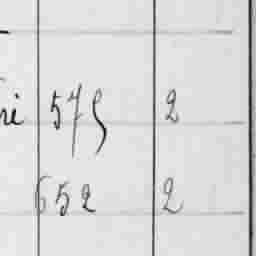 575 2
652 2